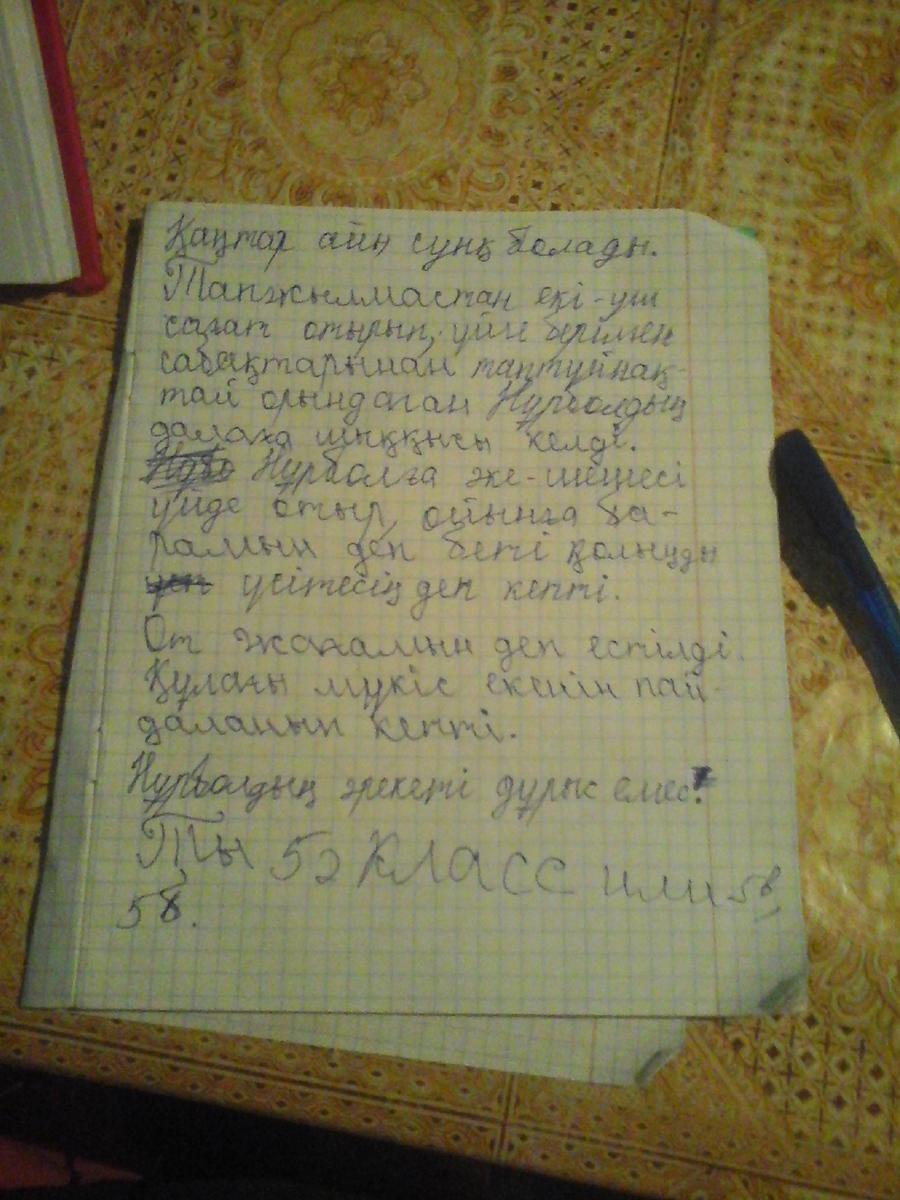 Қаңтар айы сунқ болады.
Тапжылмастан екі-үш
сағат отырып, үйге берілген
сабақтарынан таптұйнақ-
тай орындаған Нұрболдың
далаға шыққысы келді.
Нұрболға әке-шешесі
үйде отыр, ойынға ба-
рамын деп беті қолыңды
үсітесің деп кепті.
От жағамын деп естілді.
Құлағы мүкіс екенін пай-
даланып кепті.
Нұрболдың әрекеті дұрыс емес.
Ты 5г класс или 5в
5б.